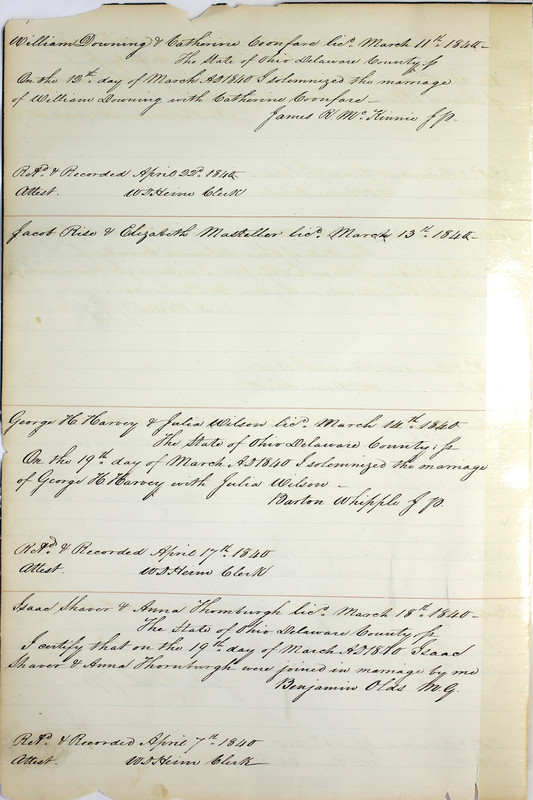 William Downing & Catherine Coonfare licd. March 11th. 1840-
The State of Ohio Delaware County ss
On the 12th. day of March AD 1840 I solemnized the marriage
of William Downing with Catherine Coonfare-
James R Mc.Kinnie J P.
Retd. & Recorded April 22d. 1840
Attest. W D Heim Clerk
Jacob Rise & Elizabeth Mastaller licd. March 13th. 1840-
George H Harvey & Julia Wilson licd. March 14th. 1840
The State of Ohio Delaware County; ss
On the 19th. day of March AD 1840 I solemnized the marriage
of George H Harvey with Julia Wilson-
Barton Whipple J P.
Retd. & Recorded April 17th. 1840
Attest. W D Heim Clerk
Isaac Shaver & Anna Thornburgh licd. March 18th. 1840-
The State of Ohio Delaware County ss
I certify that on the 19th. day of March AD 1840 Isaac
Shaver & Anna Thornburgh were joined in marriage by me
Benjamin Olds M.G.
Retd. & Recorded April 7th. 1840
Attest. W D Heim Clerk